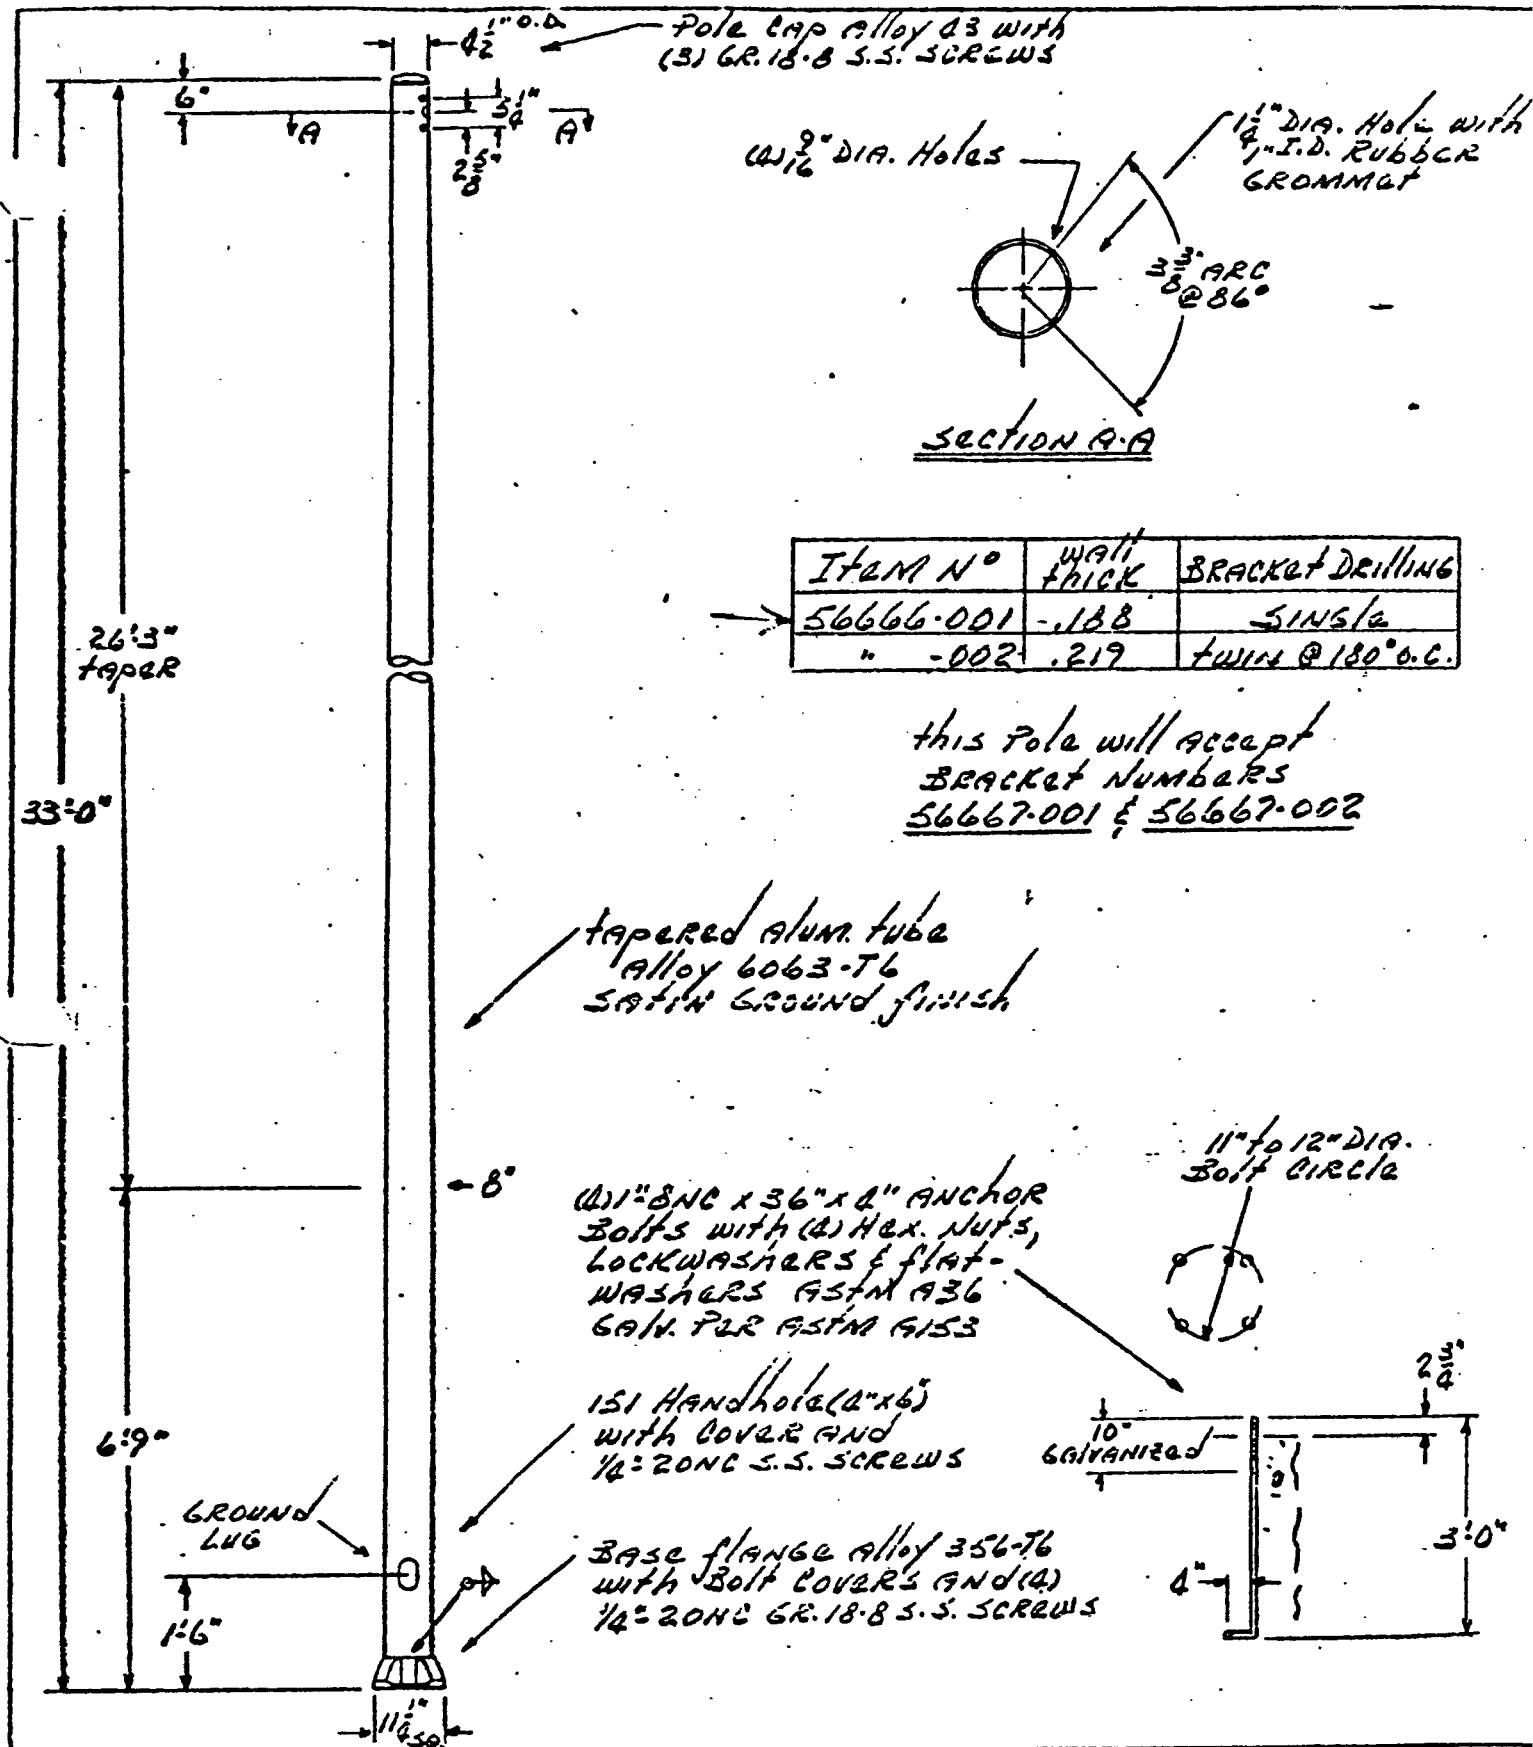 4 1/2" O.D.
Pole CAP Alloy 43 with
(3) GR. 18-8 S.S. SCREWS
6"
A
A
5 1/4"
2 5/8"
(4) 9/16" DIA. Holes
1 1/4" DIA. Hole with
1" I.D. RUBBER
GROMMET
3 3/8" ARC
@ 86°
SECTION A-A
Item No | WALL THICK | BRACKET DRILLING
56666-001 | .188 | SINGLE
" -002 | .219 | TWIN @ 180° O.C.
26'-3"
TAPER
33'-0"
This Pole will ACCEPT
BRACKET NUMBERS
56667-001 & 56667-002
TAPERED ALUM. TUBE
Alloy 6063-T6
SATIN GROUND FINISH
8"
(4) 1"-8NC x 36" x 4" ANCHOR
Bolts with (4) HEX. NUTS,
LOCKWASHERS & FLAT-
WASHERS ASTM A36
GALV. PER ASTM A153
11" to 12" DIA.
Bolt CIRCLE
6'-9"
151 HANDHOLE (4"x6")
with COVER AND
1/4"-20NC S.S. SCREWS
10"
GALVANIZED
2 3/4"
3'-0"
4"
GROUND
LUG
1'-6"
BASE FLANGE Alloy 356-T6
with Bolt COVERS AND (4)
1/4"-20NC GR. 18-8 S.S. SCREWS
11 1/4" SQ.